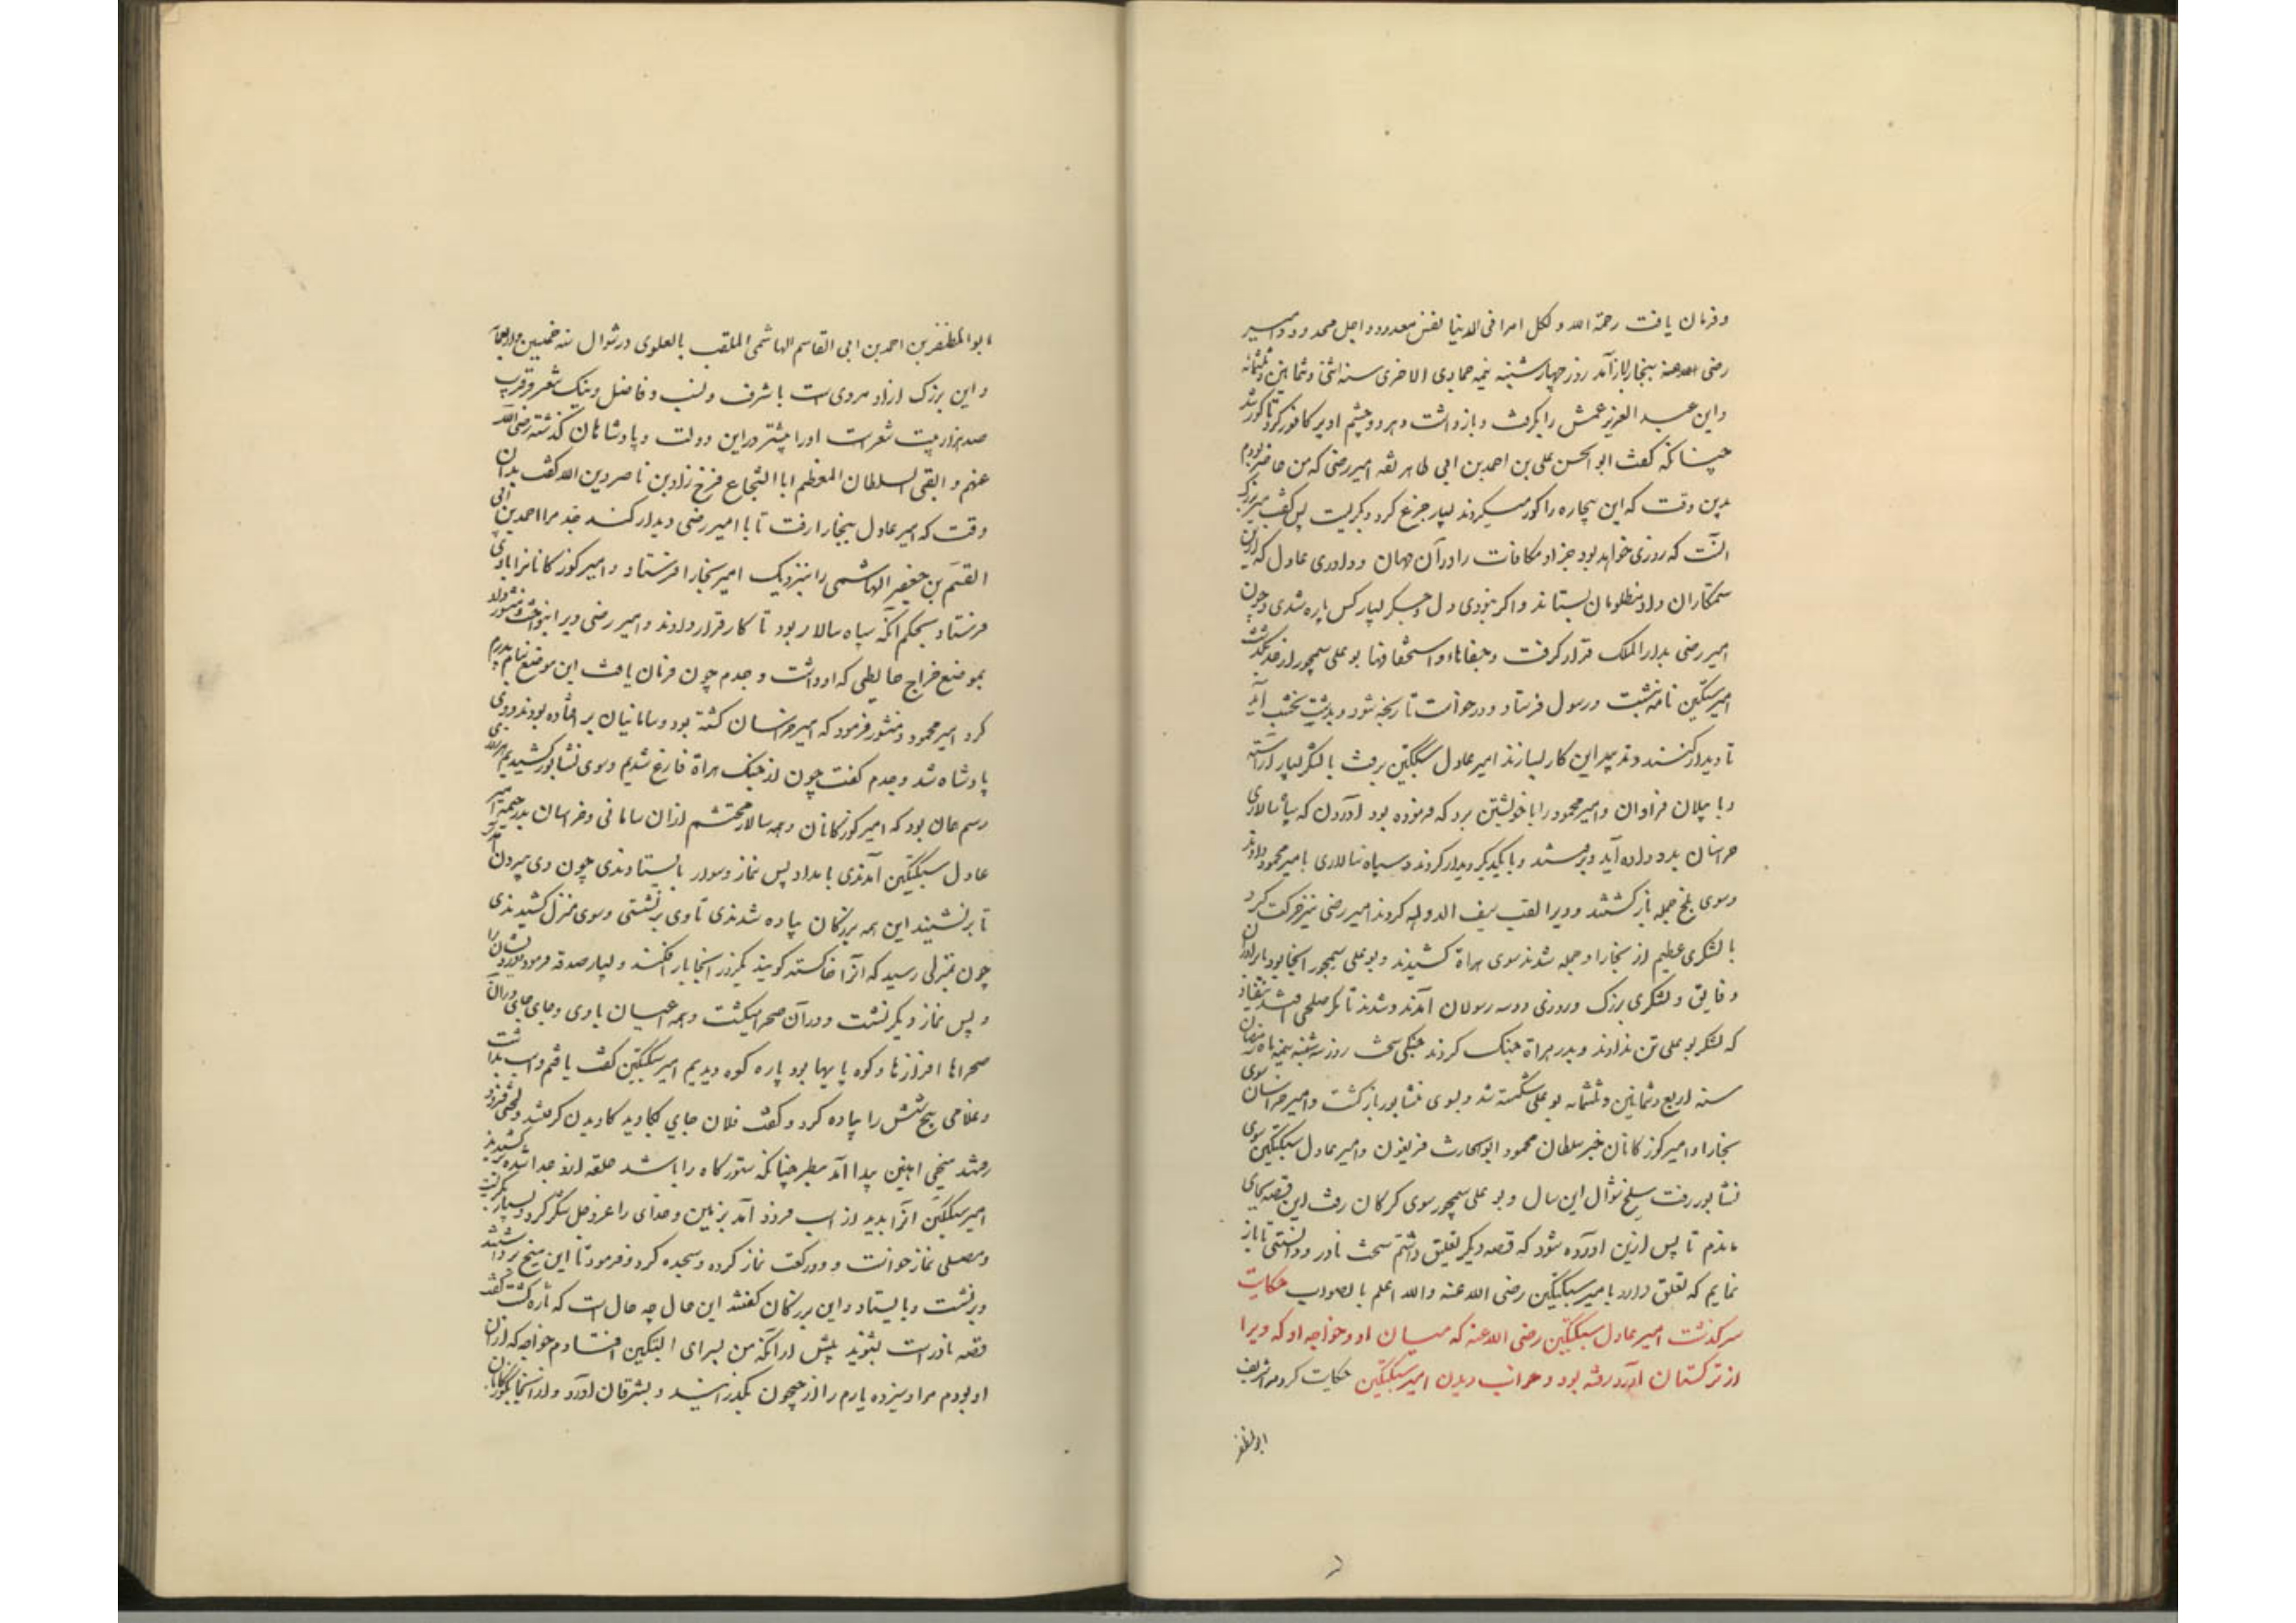 وفرمان یافت رحمة الله و لکل امرا فی الدنیا نفس معدود و اجل محدود و امیر
رضی الله عنه ببخارا باز آمد روز چهارشنبه نیمه جمادی الاخری سنه اثنی و ثمانین و ثلثمائه
و این عبد العزیز عمش را بکرفت و بازداشت و هر دو چشم او پر کافور کرد تا کور شد
چنانکه کفت ابو الحسن علی بن احمد بن ابی طاهر ثقه امیر رضی که من حاضر بودم
بدین وقت که این بیچاره را کور میکردند بسیار جزع کرد و بکریست پس کفت هنر بزرک
آنست که روزی خواهد بود جزا و مکافات را در آن جهان و داوری عادل که ازین
ستمکاران داد مظلومان بستاند و اکر نبودی دل و جکر بسیار کس پاره شدی و چون
امیر رضی بدار الملک قرار کرفت و جفاها و استخفافها بو علی سیمجور از حد بکذشت
امیر سبکتکین نامه نبشت و رسول فرستاد و درخواست تا رنجه شود و بدشت نخشب آید
تا دیدار کنند و تدبیر این کار بسازند امیر عادل سبکتکین برفت با لشکر بسیار آراسته
و با پیلان فراوان و امیر محمود را با خویشتن برد که فرموده بود آوردن که سپاه سالاری
خراسان بدو داده آید و برفتند و با یکدیکر دیدار کردند و سپاه سالاری بامیر محمود دادند
و سوی بلخ جمله بازکشتند و ویرا لقب سیف الدوله کردند امیر رضی نیز حرکت کرد
با لشکری عظیم از بخارا و جمله شدند سوی هراة کشیدند و بو علی سیمجور آنجا بود با برادران
و فایق و لشکری بزرک و روزی دو سه رسولان آمدند و شدند تا مکر صلحی افتد نیفتاد
که لشکر بو علی تن ندادند و بدر هراة جنک کردند جنکی سخت روز سه شنبه نیمه ماه رمضان
سنه اربع و ثمانین و ثلثمائه بو علی شکسته شد و بسوی نشابور بازکشت و امیر خراسان سوی
بخارا و امیر کوزکانان خسر سلطان محمود ابو الحارث فریغون و امیر عادل سبکتکین سوی
نشابور رفت سلخ شوال این سال و بو علی سیمجور سوی کرکان رفت این قصه بجای
ماندم تا پس ازین آورده شود که قصه دیکر تعلیق داشتم سخت نادر و دانستنی تا باز
نمایم که تعلق دارد بامیر سبکتکین رضی الله عنه والله اعلم بالصواب حکایت
سرکذشت امیر عادل سبکتکین رضی الله عنه که میان او و خواجه او که ویرا
از ترکستان آورد رفته بود و خواب دیدن امیر سبکتکین حکایت کرد مرا شریف
ابو المظفر
ابو المظفر بن احمد بن ابی القاسم الهاشمی الملقب بالعلوی در شوال سنه خمسین و اربعمائه
و این بزرک آزاد مردی ست با شرف و نسب و فاضل و نیک شعر و قرب
صد هزار بیت شعر ست او را بیشتر در این دولت و پادشاهان کذشته رضی الله
عنهم و ابقی السلطان المعظم ابا الشجاع فرخ زاد بن ناصر دین الله کفت بدان
وقت که امیر عادل ببخارا رفت تا با امیر رضی دیدار کند جد مرا احمد بن ابی
القسم بن جعفر الهاشمی را بنزدیک امیر بخارا فرستاد و امیر کوزکانانرا با وی
فرستاد بحکم آنکه سپاه سالار بود تا کار قرار دادند و امیر رضی ویرا بنواخت و منشور داد
بموضع خراج حایطی که او داشت و جدم چون فرمان یافت این موضع بنام پدرم
کرد امیر محمود و منشور فرمود که امیر خراسان کشته بود و سامانیان بر افتاده بودند و وی
پادشاه شد و جدم کفت چون از جنک هراة فارغ شدیم و سوی نشابور کشیدیم هر روز
رسم چنان بود که امیر کوزکانان و همه سالار محتشم ازان سامانی و خراسان بدر خیمه امیر
عادل سبکتکین آمدندی بامداد پس نماز و سوار بایستادندی چون وی بیرون آمدی
تا برنشیند این همه بزرکان پیاده شدندی تا وی برنشستی و سوی منزل کشیدندی
چون بمنزلی رسید که آنرا خاکستر کویند یکروز آنجا بار افکند و بسیار صدقه فرمود درویشان را
و پس نماز دیکر نشست و در آن صحرا میکشت و همه اعیان با وی و جای جای در آن
صحراها افرازها و کوه پایها بود پاره کوه دیدیم امیر سبکتکین کفت یافتم و اسب بداشت
و غلامی پنج شش را پیاده کرد و کفت فلان جای بکاوید کاویدن کرفتند و لختی فرو
رفتند میخی آهنین پیدا آمد سطبر چنانکه ستورکاه را باشد حلقه ازو جدا شده برکشیدند
امیر سبکتکین آنرا بدید از اسب فرود آمد بزمین و خدای را عز و جل شکر کرد و بسیار بکریست
و مصلی نماز خواست و دو رکعت نماز کرده و سجده کرد و فرمود تا این میخ برداشتند
و برنشست و بایستاد و این بزرکان کفتند این حال چه حال است که تازه کشت کفت
قصه نادر است بشنوید پیش از آنکه من بسرای البتکین افتادم خواجه که از آن
او بودم مرا و سیزده یارم را از جیحون بکذرانید و بشبرقان آورد و از آنجا بکوزکانان